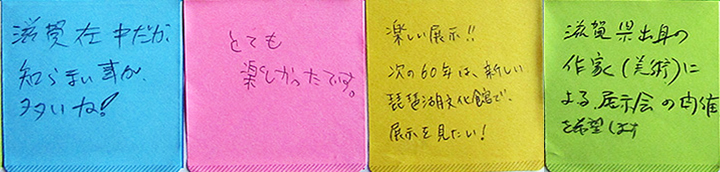 滋賀在中だが、
知らまい事が、
多いね!
とても
楽しかったです。
楽しい展示!!
次の60年は、新しい
琵琶湖文化館で、
展示を見たい!
滋賀県出身の
作家(美術)に
よる展示会の開催
を希望します